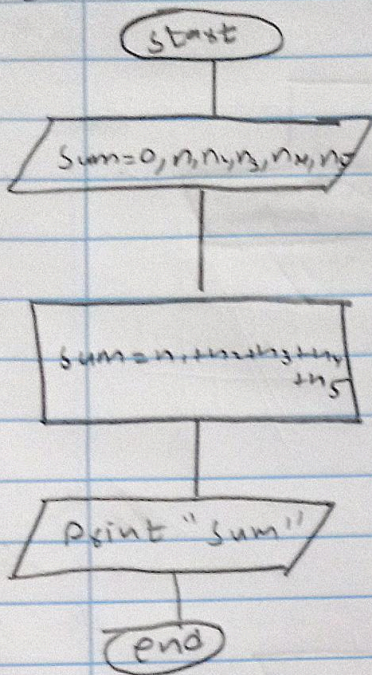 start
sum=0, n1, n2, n3, n4, n5
sum=n1+n2+n3+n4
+n5
Print "sum"
end